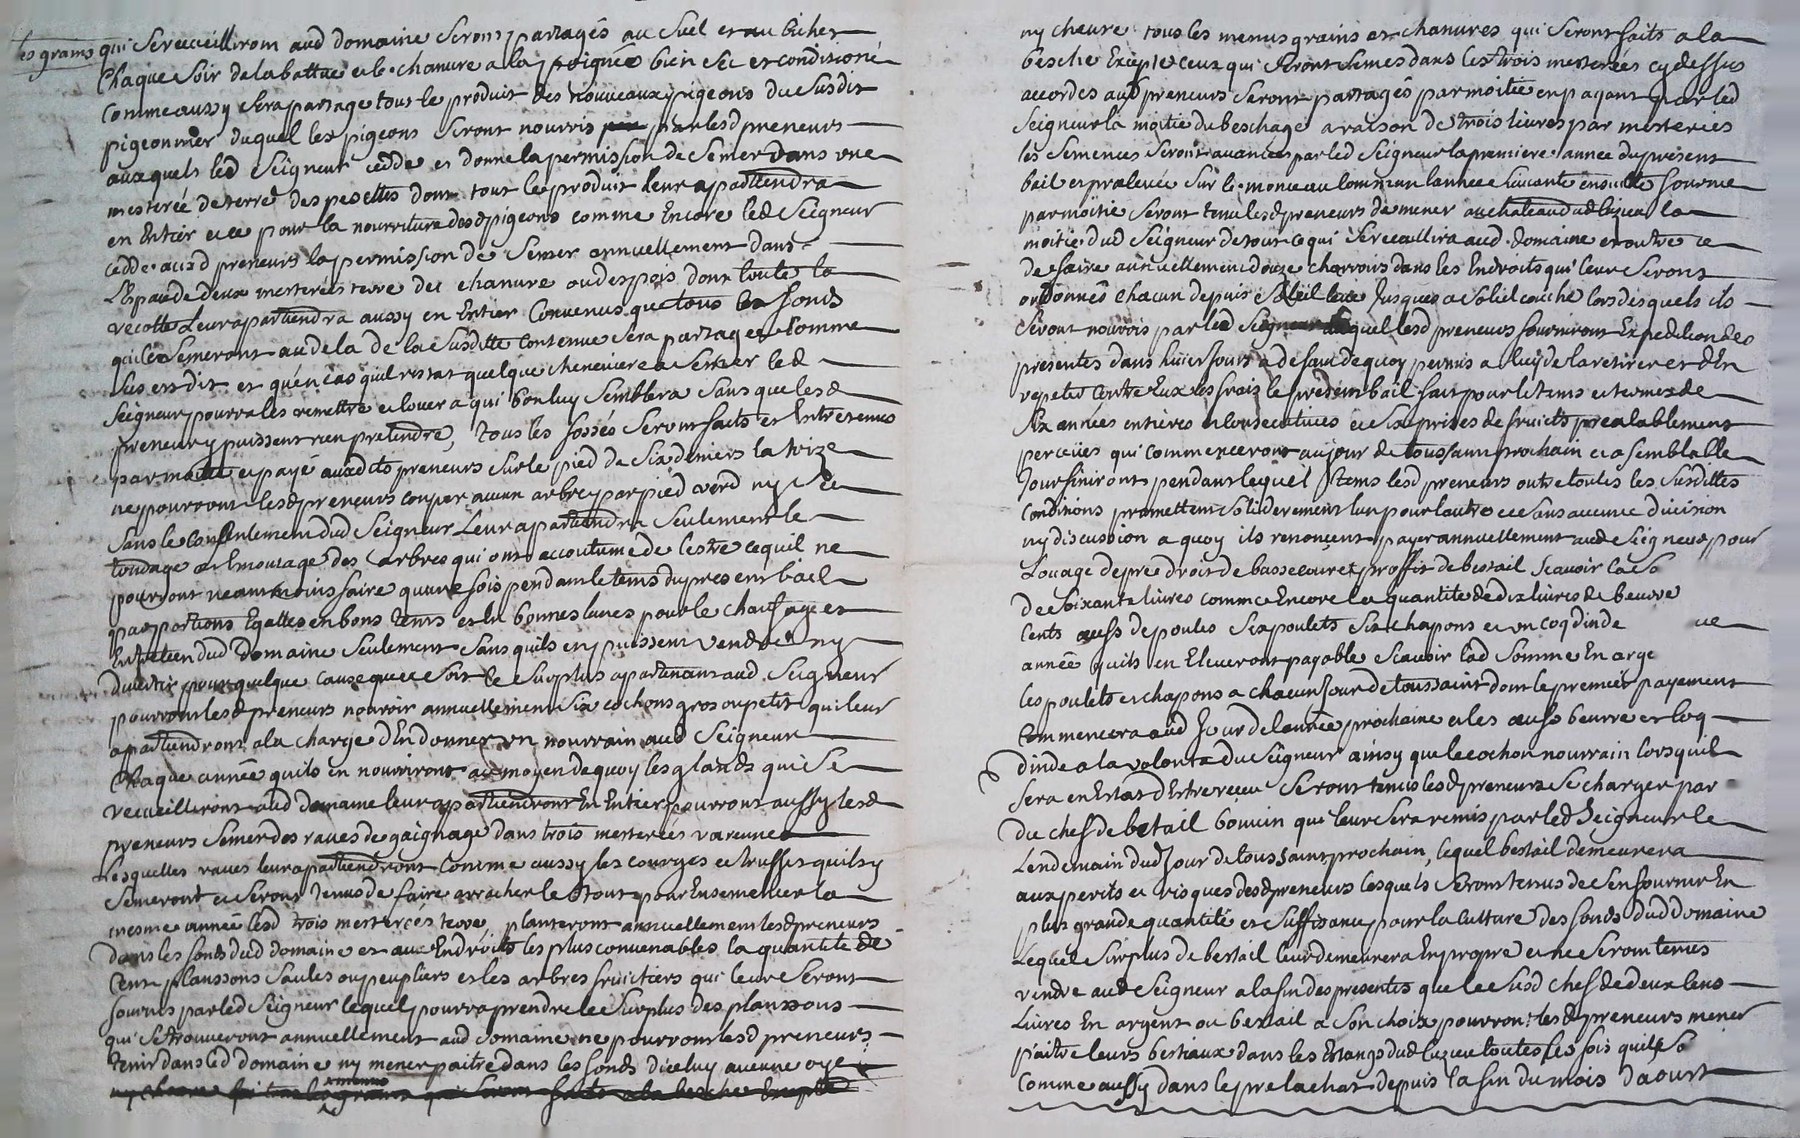 les grains qui se receuilliront aud domaine seront partagés au suel et au bichet
chaque soir de la battue et le chanure a la poignée bien sec et conditioné
comme aussy sera partage tout le produit des nouveaux pigeons du susdit
pigeonnier duquel les pigeons seront nourris par lesd preneurs
auxquels led Seigneur cedde et donne la permission de semer dans une
mesterée de terre des pesettes dont tout le produit leur apartiendra
en entier et ce pour la nourriture desd pigeons comme encore led Seigneur
cedde ausd preneurs la permission de semer annuellement dans
l'espace de deux mesterées terre du chanure ou des pois dont toute la
recolte leur apartiendra aussy en entier convenus que tous les fonds
qu'ils semeront au dela de la susditte contenue sera partagee comme
sus est dit et qu'en cas quil restat quelque cheneviere a semer led
Seigneur pourra les remettre et louer a qui bon luy semblera sans que lesd
preneurs y puissent rien pretendre, tous les fossés seront faits et entretenus
par moitié et payé auxdits preneurs sur le pied de six deniers la toize
ne pourront lesd preneurs couper aucun arbre par pied verd ny sec
sans le consentement dud Seigneur leur apartiendra seulement le
tondage et emontage des arbres qui ont accoutumé de l'estre ce quil ne
pourront neantmoins faire quune fois pendant le tems du present bail
par portions egalles en bons tems et en bonnes lunes pour le chaufage et
entretien dud domaine seulement sans quils en puissent vendre ny
divertir pour quelque cause que ce soit le surplus apartenant aud Seigneur
pourront lesd preneurs nourrir annuellement six cochons gros ou petit qui leur
apartiendront a la charge d'en donner un nourrain aud Seigneur
chaque année quils en nourriront au moyen de quoy les glands qui se
recueilliront aud domaine leur apartiendront en entier pourront aussy lesd
preneurs semer des raves de gaignage dans trois mesterées varenne
lesquelles raves leur apartiendront comme aussy les courges et truffes quils y
semeront et seront tenus de faire arracher le tout pour ensemencer la
mesme année lesd trois mesterées terre, planteront annuellement lesd preneurs
dans les fonds dud domaine et aux endroits les plus convenables la quantité de
cent planssons saules ou peupliers et les arbres fruictiers qui leur seront
fournis par led Seigneur lequel pourra prendre le surplus des planssons
qui se trouveront annuellement aud domaine ne pourront lesd preneurs
tenir dans led domaine ny mener paitre dans les fonds d'iceluy aucune oye
ny chevre tous les menus grains et chanures qui seront faits a la
besche excepté ceux qui seront semes dans les trois mesterées cy dessus
accordes aux preneurs seront partagés par moitié en payant par led
Seigneur la moitié du beschage a raison de trois livres par mesterées
les semences seront avancées par led Seigneur la premiere année du present
bail et prelevée sur le monceau commun l'année suivante ensuitte fournie
par moitié seront tenus lesd preneurs de mener au chateau de la
moitié dud Seigneur de tout ce qui se receuillira aud domaine et outre ce
de faire annuellement douze charrois dans les endroits qui leur seront
ordonnés chacun depuis soleil levé jusques a soleil couché lors desquels ils
seront nourris par led Seigneur auquel lesd preneurs fourniront expedition des
presentes dans huict jours a defaut de quoy permis a luy de la retirer et d'en
repeter contre eux les frais le present bail fait pour le tems et terme de
six années entières et consecutives et six prises de fruicts prealablement
percües qui commenceront au jour de toussaint prochain et a semblable
jour finiront pendant lequel tems lesd preneurs outre toutes les susdittes
conditions promettent solidairement lun pour lautre et sans aucune division
ny discussion a quoy ils renoncent payer annuellement aud Seigneur pour
louage de pre droit de bassecour et proffit de bestail scavoir la so
de soixante livres comme encore la quantité de dix livres de beurre
cents œufs de poules six poulets six chapons et un coq dinde
année quils en eleveront payable scavoir lad somme en arge
les poulets et chapons a chacun jour de toussaint dont le premier payement
commencera aud jour de l'année prochaine et les œufs beurre et coq
dinde a la volonté du Seigneur ainsy que le cochon nourrain lorsquil
sera en estat d'estre receu seront tenus lesd preneurs se charger par
du chef de betail bouvin que leur sera remis par led Seigneur le
lendemain dud jour de toussaint prochain, lequel bestail demeurera
aux perils et risques desd preneurs lesquels seront tenus de s'en fournir en
plus grande quantité et suffisance pour la culture des fonds dud domaine
lequel surplus de bestail leur demeurera en propre et ne seront tenus
rendre aud Seigneur a la fin des presentes que le susd chef de deux cens
livres en argent ou bestail a son choix pourront lesd preneurs mener
paitre leurs bestiaux dans les etangs dud toutes les fois quils so
comme aussy dans le pre lachat depuis la fin du mois daoust